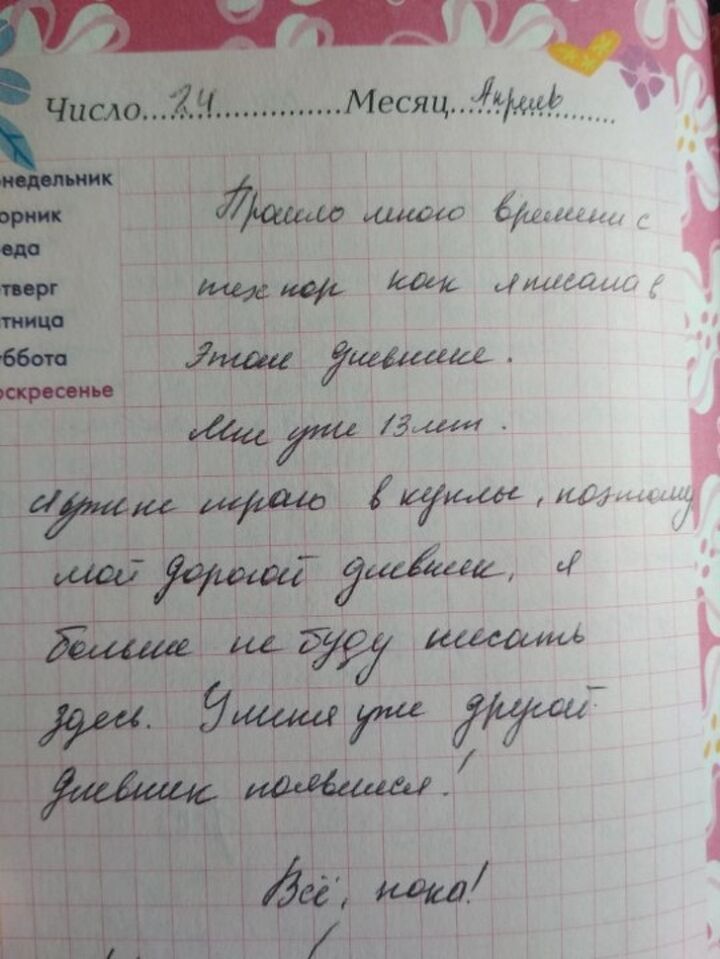 Число....24....................Месяц....Апрель........
недельник
орник
еда
тверг
тница
ббота
скресенье
Прошло много времени с
тех пор как я писала в
этом дневнике.
Мне уже 13 лет.
Я уже не играю в куклы, поэтому
мой дорогой дневник, я
больше не буду писать
здесь. У меня уже другой
дневник появился!
Всё, пока!